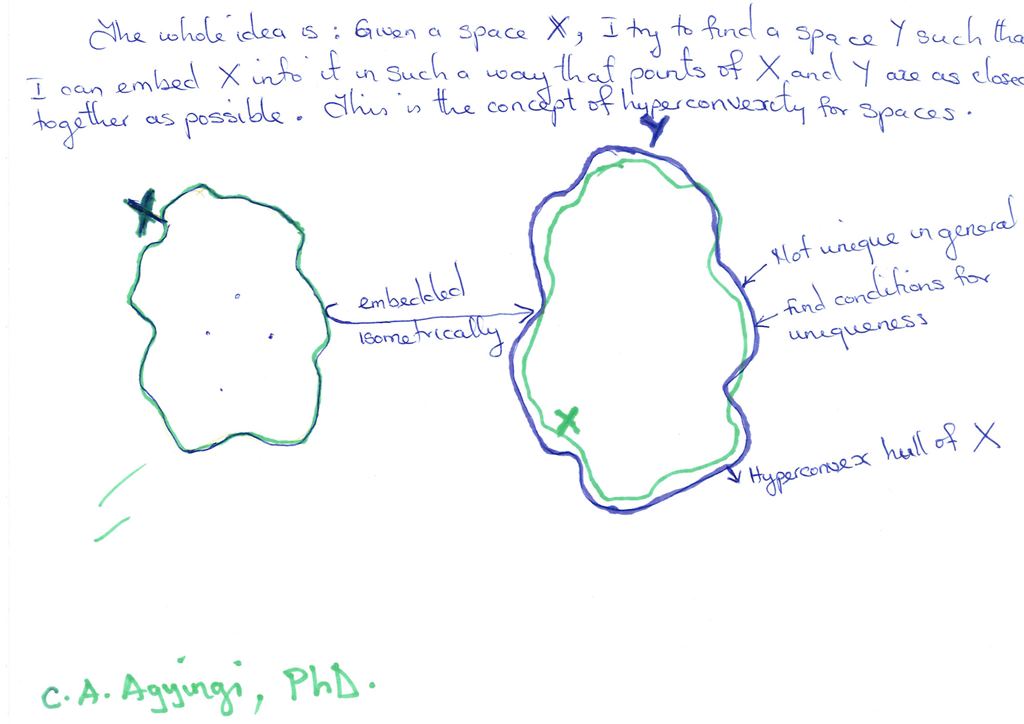 The whole idea is : Given a space X, I try to find a space Y such tha
I can embed X into it in such a way that points of X and Y are as closed
together as possible. This is the concept of hyperconvexity for spaces.
Y
X
Not unique in general
embedded
isometrically
find conditions for
uniqueness
X
Hyperconvex hull of X
C. A. Agyingi, PhD.